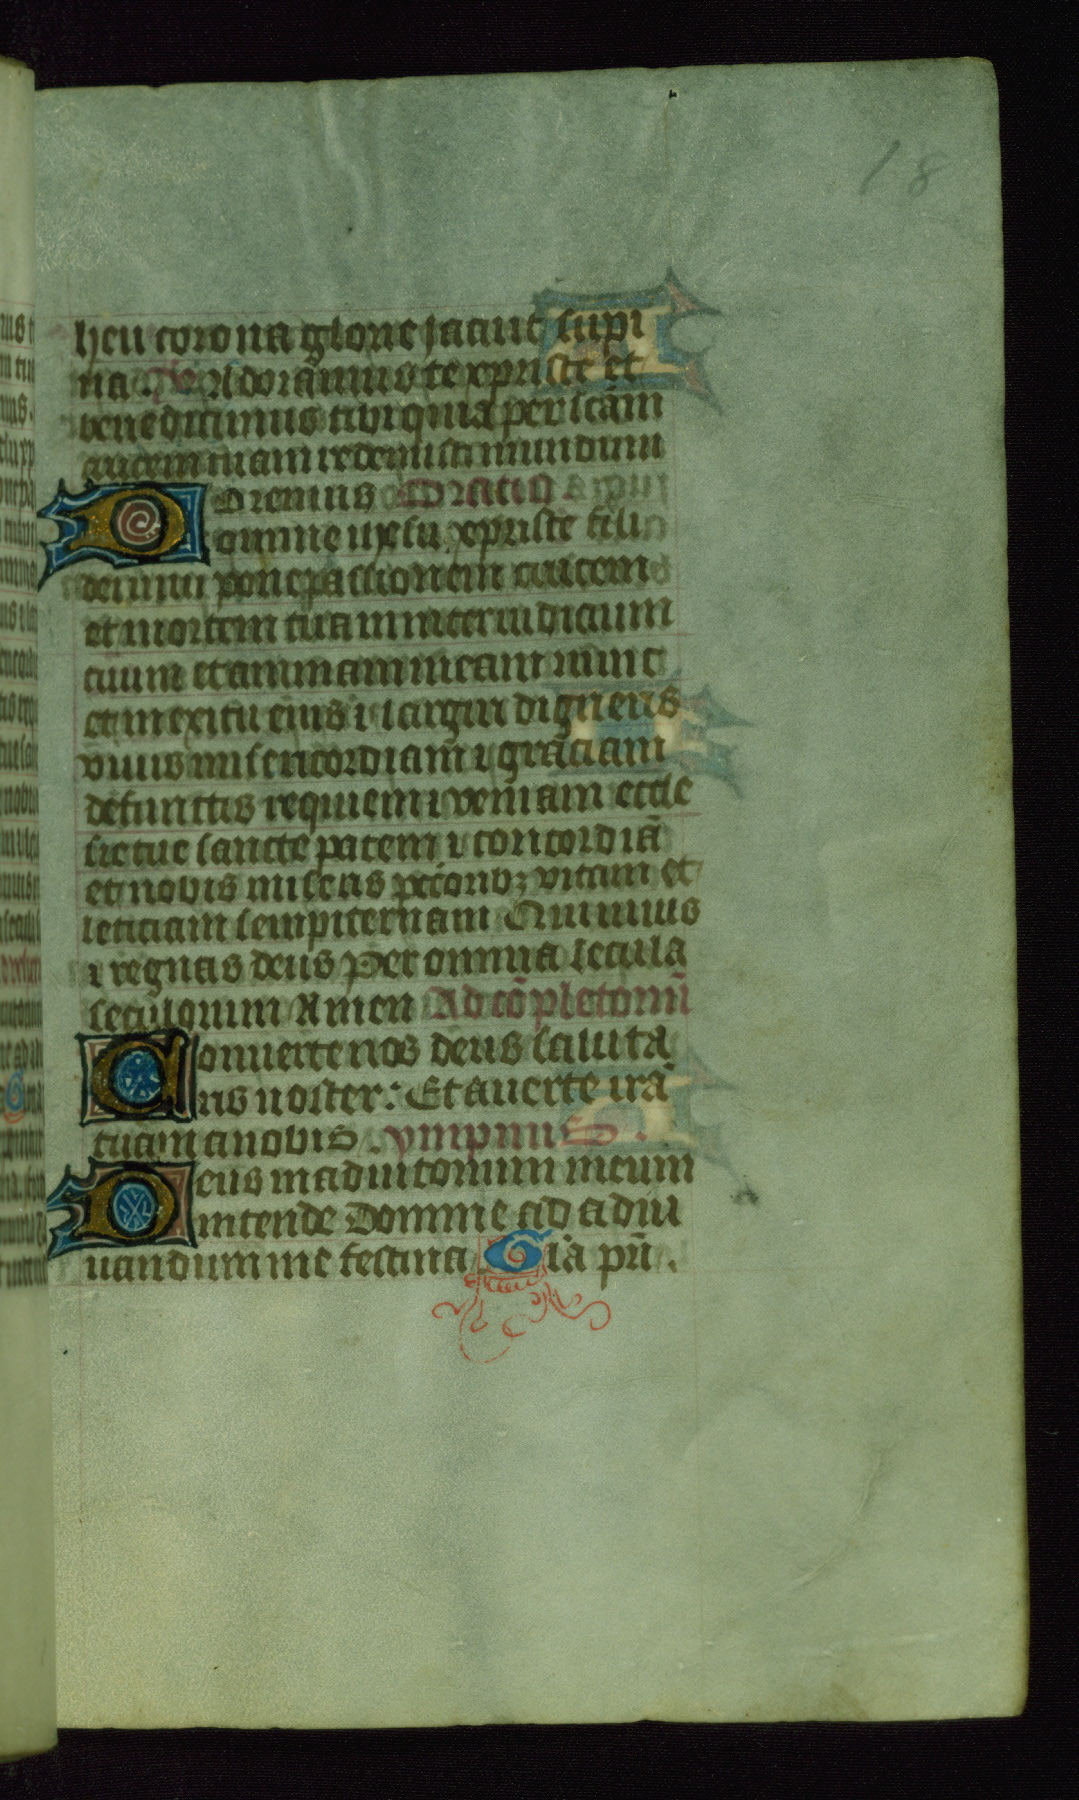 18
heu corona glorie jacuit supi
na. V. Adoramus te xpriste et
benedicimus tibi quia per scām
crucem tuam redemisti mundum
Oremus Oratio
Domine ihesu xpriste fili
dei uiui pone passionem crucem
et mortem tuam inter iudicium
tuum et animam meam nunc
et in exitu eius ⁊ largiri digneris
viuis misericordiam ⁊ grāciam
defunctis requiem ⁊ veniam eccle
sie tue sancte pacem ⁊ concordiā
et nobis miseris pctōribꝫ vitam et
leticiam sempiternam Qui viuis
⁊ regnas deus Per omnia secula
seculorum Amen Ad cōpletoriū
Conuerte nos deus saluta
ris noster: Et auerte irā
tuam a nobis. ympnus.
Deus in adiutorium meum
intende Domine ad adiu
uandum me festina Gľa pr̄i.